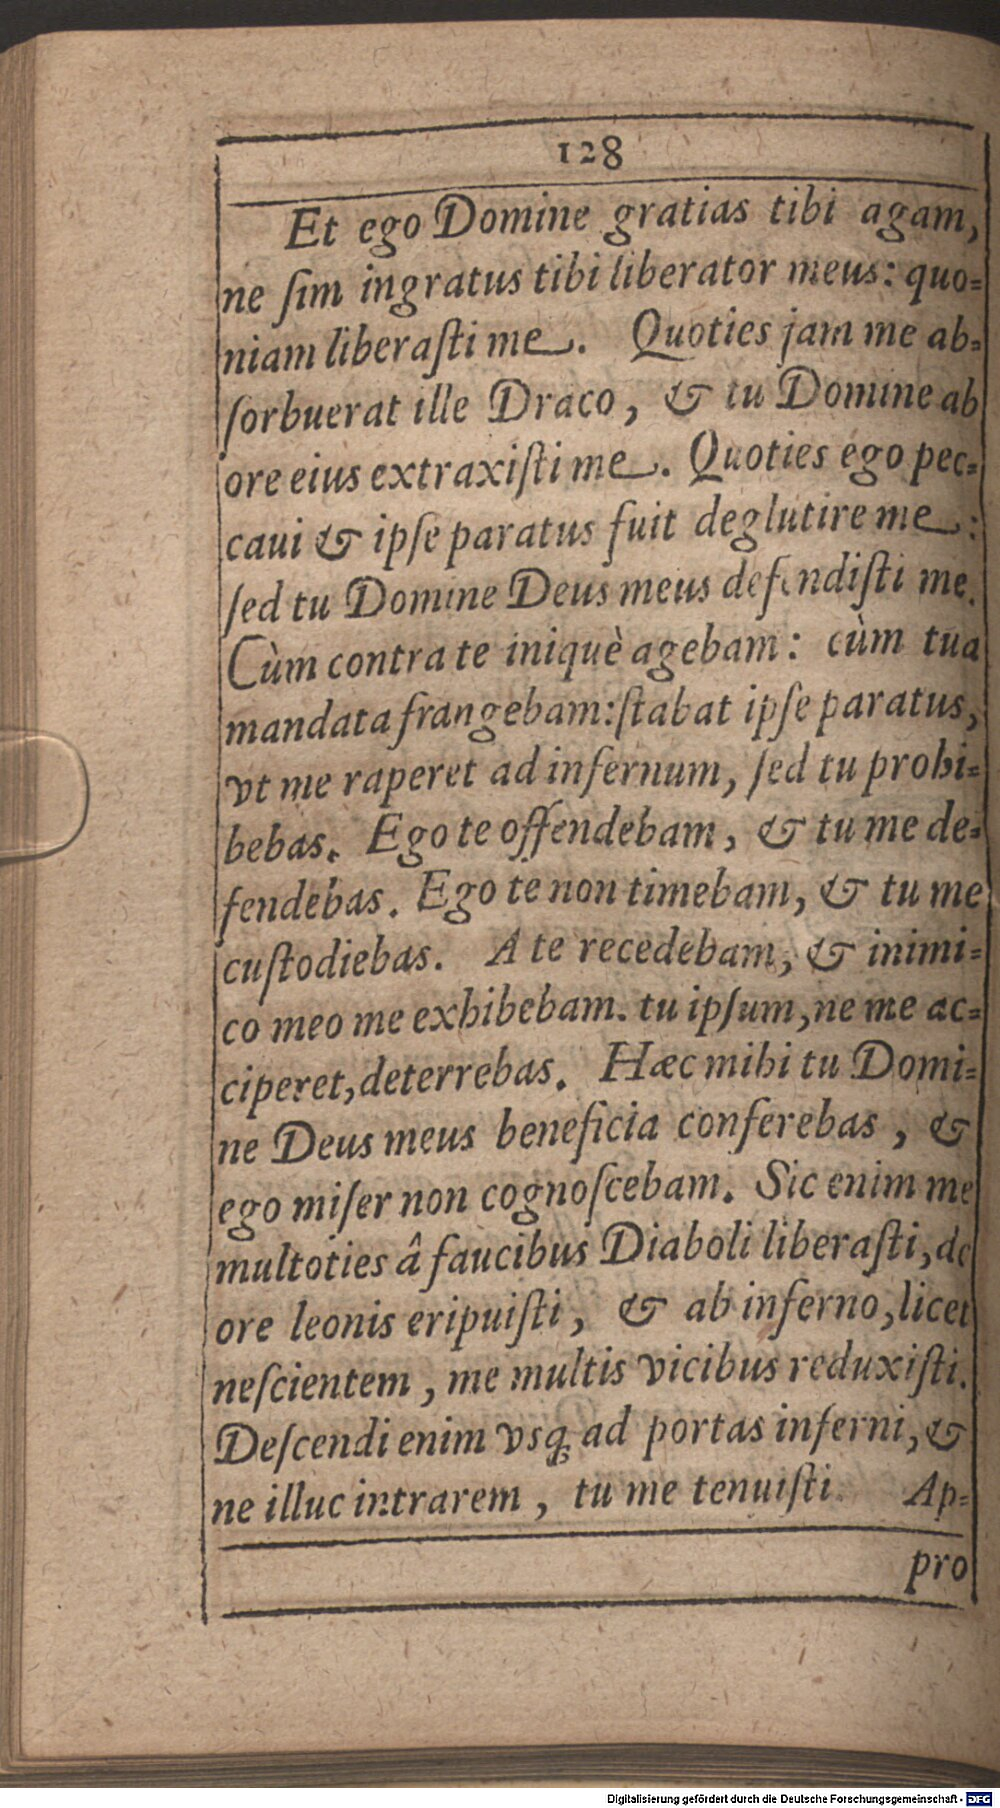 128
Et ego Domine gratias tibi agam,
ne ſim ingratus tibi liberator meus: quo=
niam liberaſti me. Quoties jam me ab=
ſorbuerat ille Draco, & tu Domine ab
ore eius extraxiſti me. Quoties ego pec=
caui & ipſe paratus fuit deglutire me:
ſed tu Domine Deus meus defendiſti me.
Cùm contra te iniquè agebam: cùm tua
mandata frangebam: ſtabat ipſe paratus,
vt me raperet ad infernum, ſed tu prohi=
bebas. Ego te offendebam, & tu me de=
fendebas. Ego te non timebam, & tu me
cuſtodiebas. A te recedebam, & inimi=
co meo me exhibebam. tu ipſum, ne me ac=
ciperet, deterrebas. Hæc mihi tu Domi=
ne Deus meus beneficia conferebas, &
ego miſer non cognoſcebam. Sic enim me
multoties â faucibus Diaboli liberaſti, de
ore leonis eripuiſti, & ab inferno, licet
neſcientem, me multis vicibus reduxiſti.
Deſcendi enim vsq; ad portas inferni, &
ne illuc intrarem, tu me tenuiſti. Ap=
pro
Digitalisierung gefördert durch die Deutsche Forschungsgemeinschaft - DFG